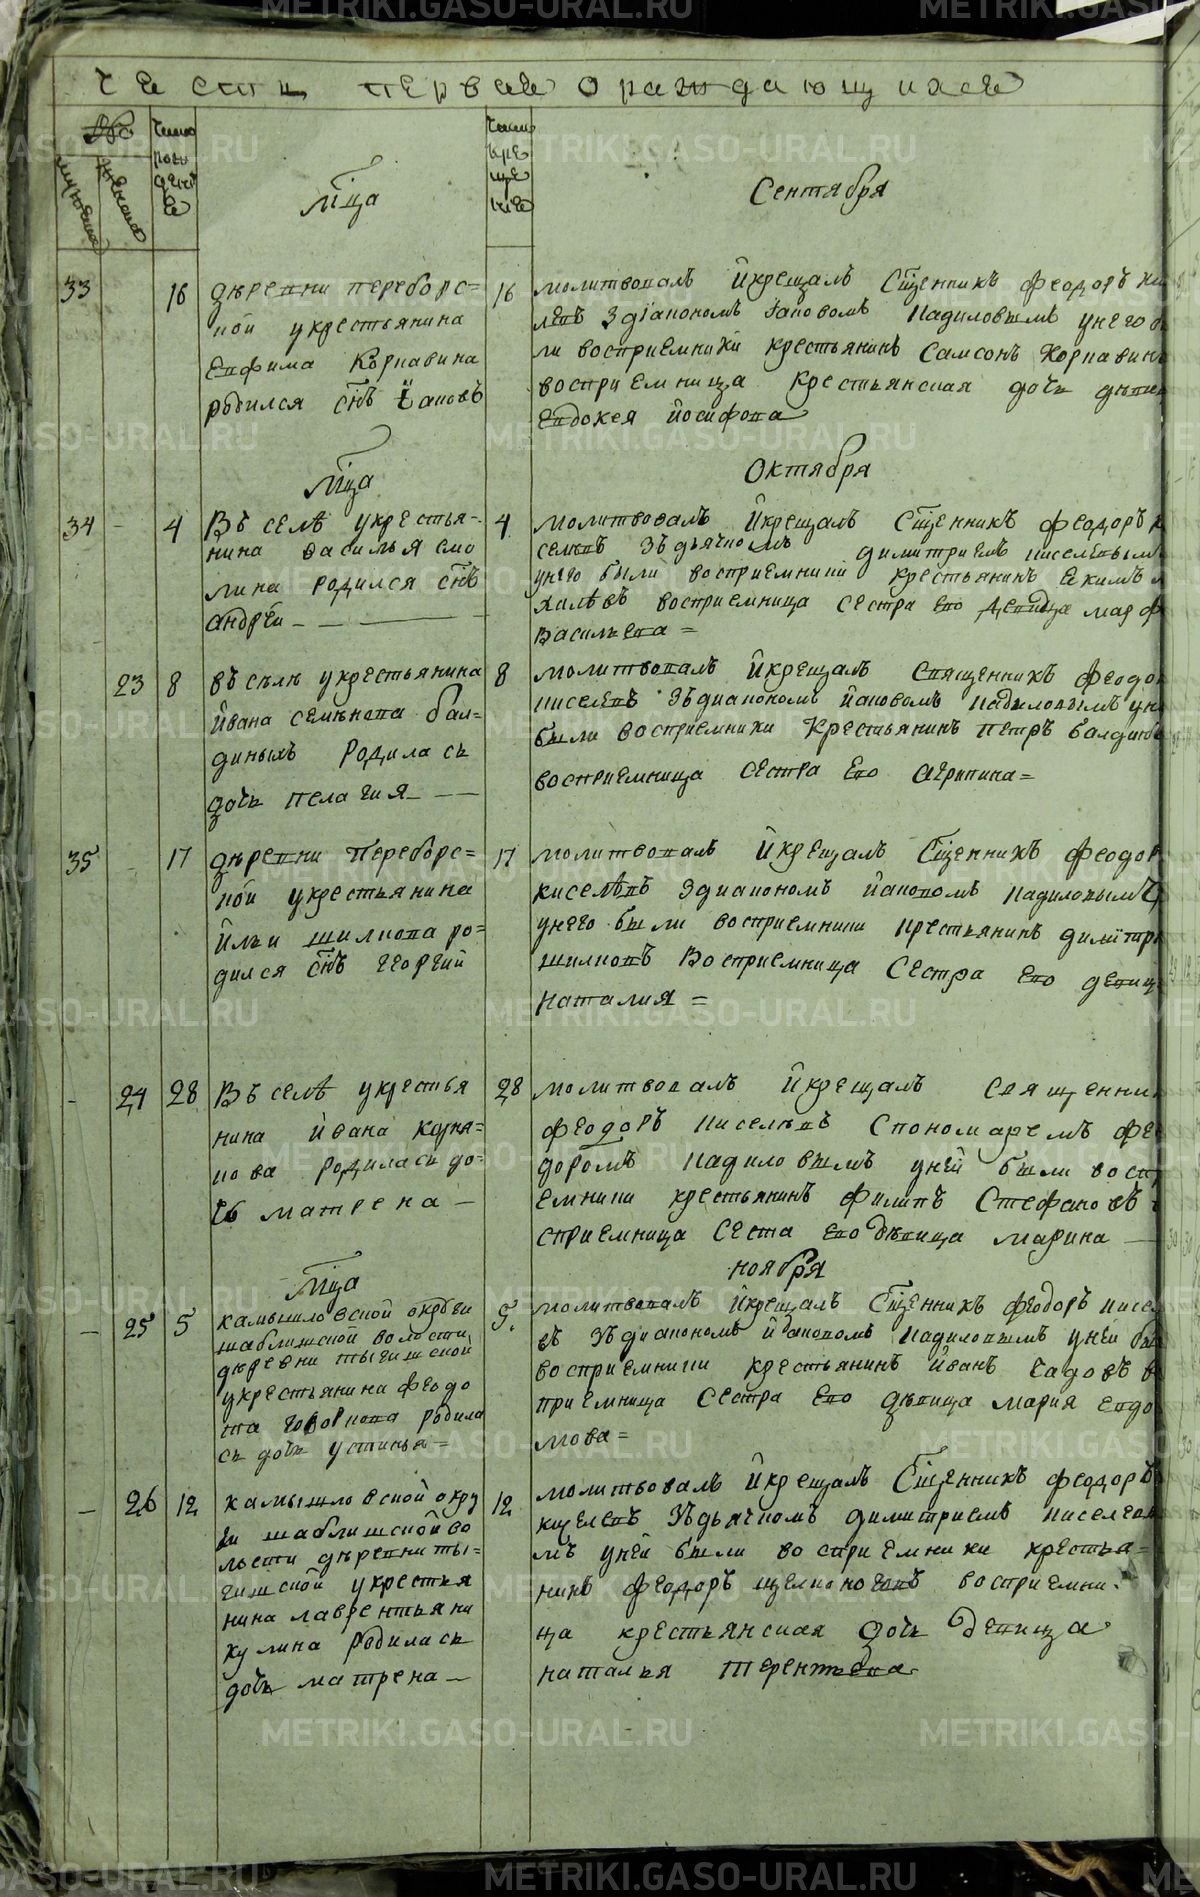 части первая о раждающихся
№
мужеска
женска
число рождения
число крещения
Мца
Сентября
33
16
дѣревни переборс=
ной укрестьянина
Евфима Корнавина
родился снъ Iаковъ
16
молитвовалъ Iкрещалъ Сщенникъ феодоръ
здiакономъ Iаковомъ Кадиловымъ унего
ли восприемники крестьянинъ Самсонъ Корнавинъ
восприемница крестьянская дочь
Евдокея Iосифова
Мца
Октября
34
4
Въ селѣ укрестья-
нина василья смо
лина родился снъ
андрей
4
молитвовалъ Iкрещалъ Сщенникъ феодоръ
селевъ Зъдьячкомъ димитриемъ киселевым
унего были восприемники крестьянинъ Екимъ
восприемница сестра его девица марф
васильева =
23
8
въ сѣлѣ укрестьянина
Iвана семѣнова бал=
диныхъ родилась
дочь пелагия
8
молитвовалъ Iкрещалъ священникъ феодо
киселевъ Зъдиакономъ Iаковомъ Кадиловымъ
были восприемники Крестьянинъ петръ балдин
восприемница сестра Его агрипина=
35
17
дѣревни Переборс=
ной укрестьянина
Iльи шилкова ро=
дился снъ георгий
17
молитвовалъ Iкрещалъ Сщенникъ феодор
киселѣвъ здиакономъ Iаковомъ кадиловымъ
унего были восприемники крестьянинъ димитри
шилковъ Восприемница Сестра Его девиц
наталия =
24
28
Въ селѣ укрестья
нина Iвана корня=
кова родилась до=
чь матрена
28
молитвовалъ Iкрещалъ священни
феодоръ киселевъ Спономаремъ фе
доромъ кадиловымъ уней были восп
емники крестьянинъ филипъ Стефановъ
сприемница Сеста его дѣвица марина
Мца
ноября
25
5
камышловской округи
шаблишской волости
дѣревни тыгишской
укрестьянина феодо
та говоркова родила
сь дочь устинья=
5.
молитвовалъ Iкрещалъ Сщенникъ феодоръ кисел
въ Зъдиакономъ Iаковомъ Кадиловымъ уней бы
восприемники крестьянинъ Iванъ Чадовъ в
приемница Сестра Его дѣвица мария евдо
мова=
26
12
камышловской окру
ги шаблишской во
лости дѣревни ты=
гишской укрестья
нина лаврентья ни
кулина родилась
дочь матрена
12
молитвовалъ Iкрещалъ Сщенникъ феодоръ
киселевъ Зъдьячкомъ димитриемъ киселевы
мъ уней были восприемники крестья=
нинъ феодоръ восприемни-
ца крестьянская дочь девица
наталья терентьева
METRIKI.GASO-URAL.RU